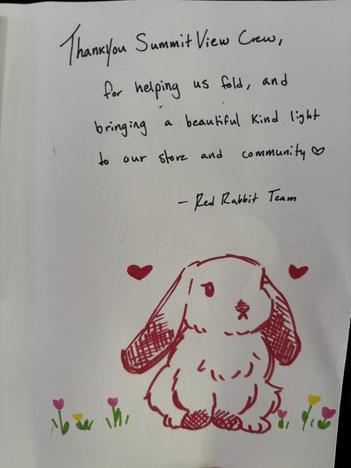 Thankyou Summit View Crew,
for helping us fold, and
bringing a beautiful kind light
to our store and community ♡
- Red Rabbit Team